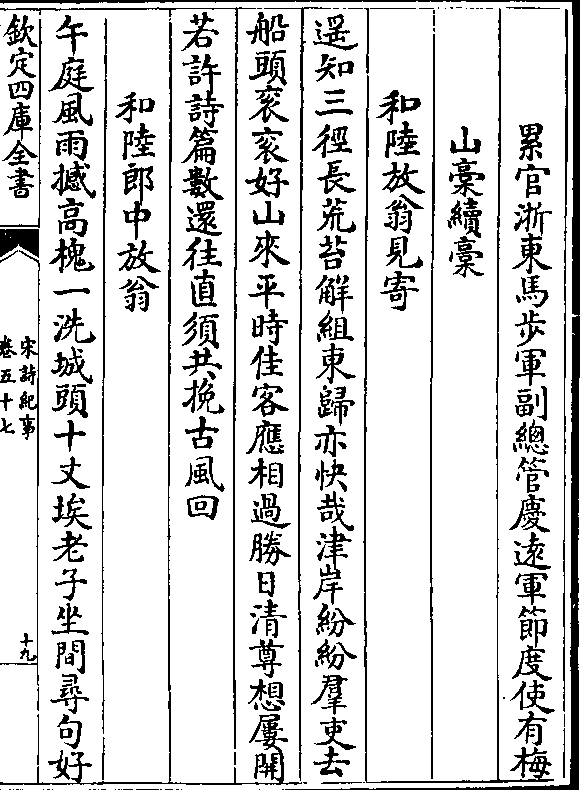 累官浙東馬步軍副總管慶遠軍節度使有梅
山稾續稾
和陸放翁見寄
遥知三徑長荒苔解組東歸亦快哉津岸紛紛羣吏去
船頭衮衮好山來平時佳客應相過勝日清尊想屢開
若許詩篇數還往直須共挽古風回
和陸郎中放翁
午庭風雨撼高槐一洗城頭十丈埃老子坐間尋句好
欽定四庫全書
宋詩紀事
卷五十七
十九